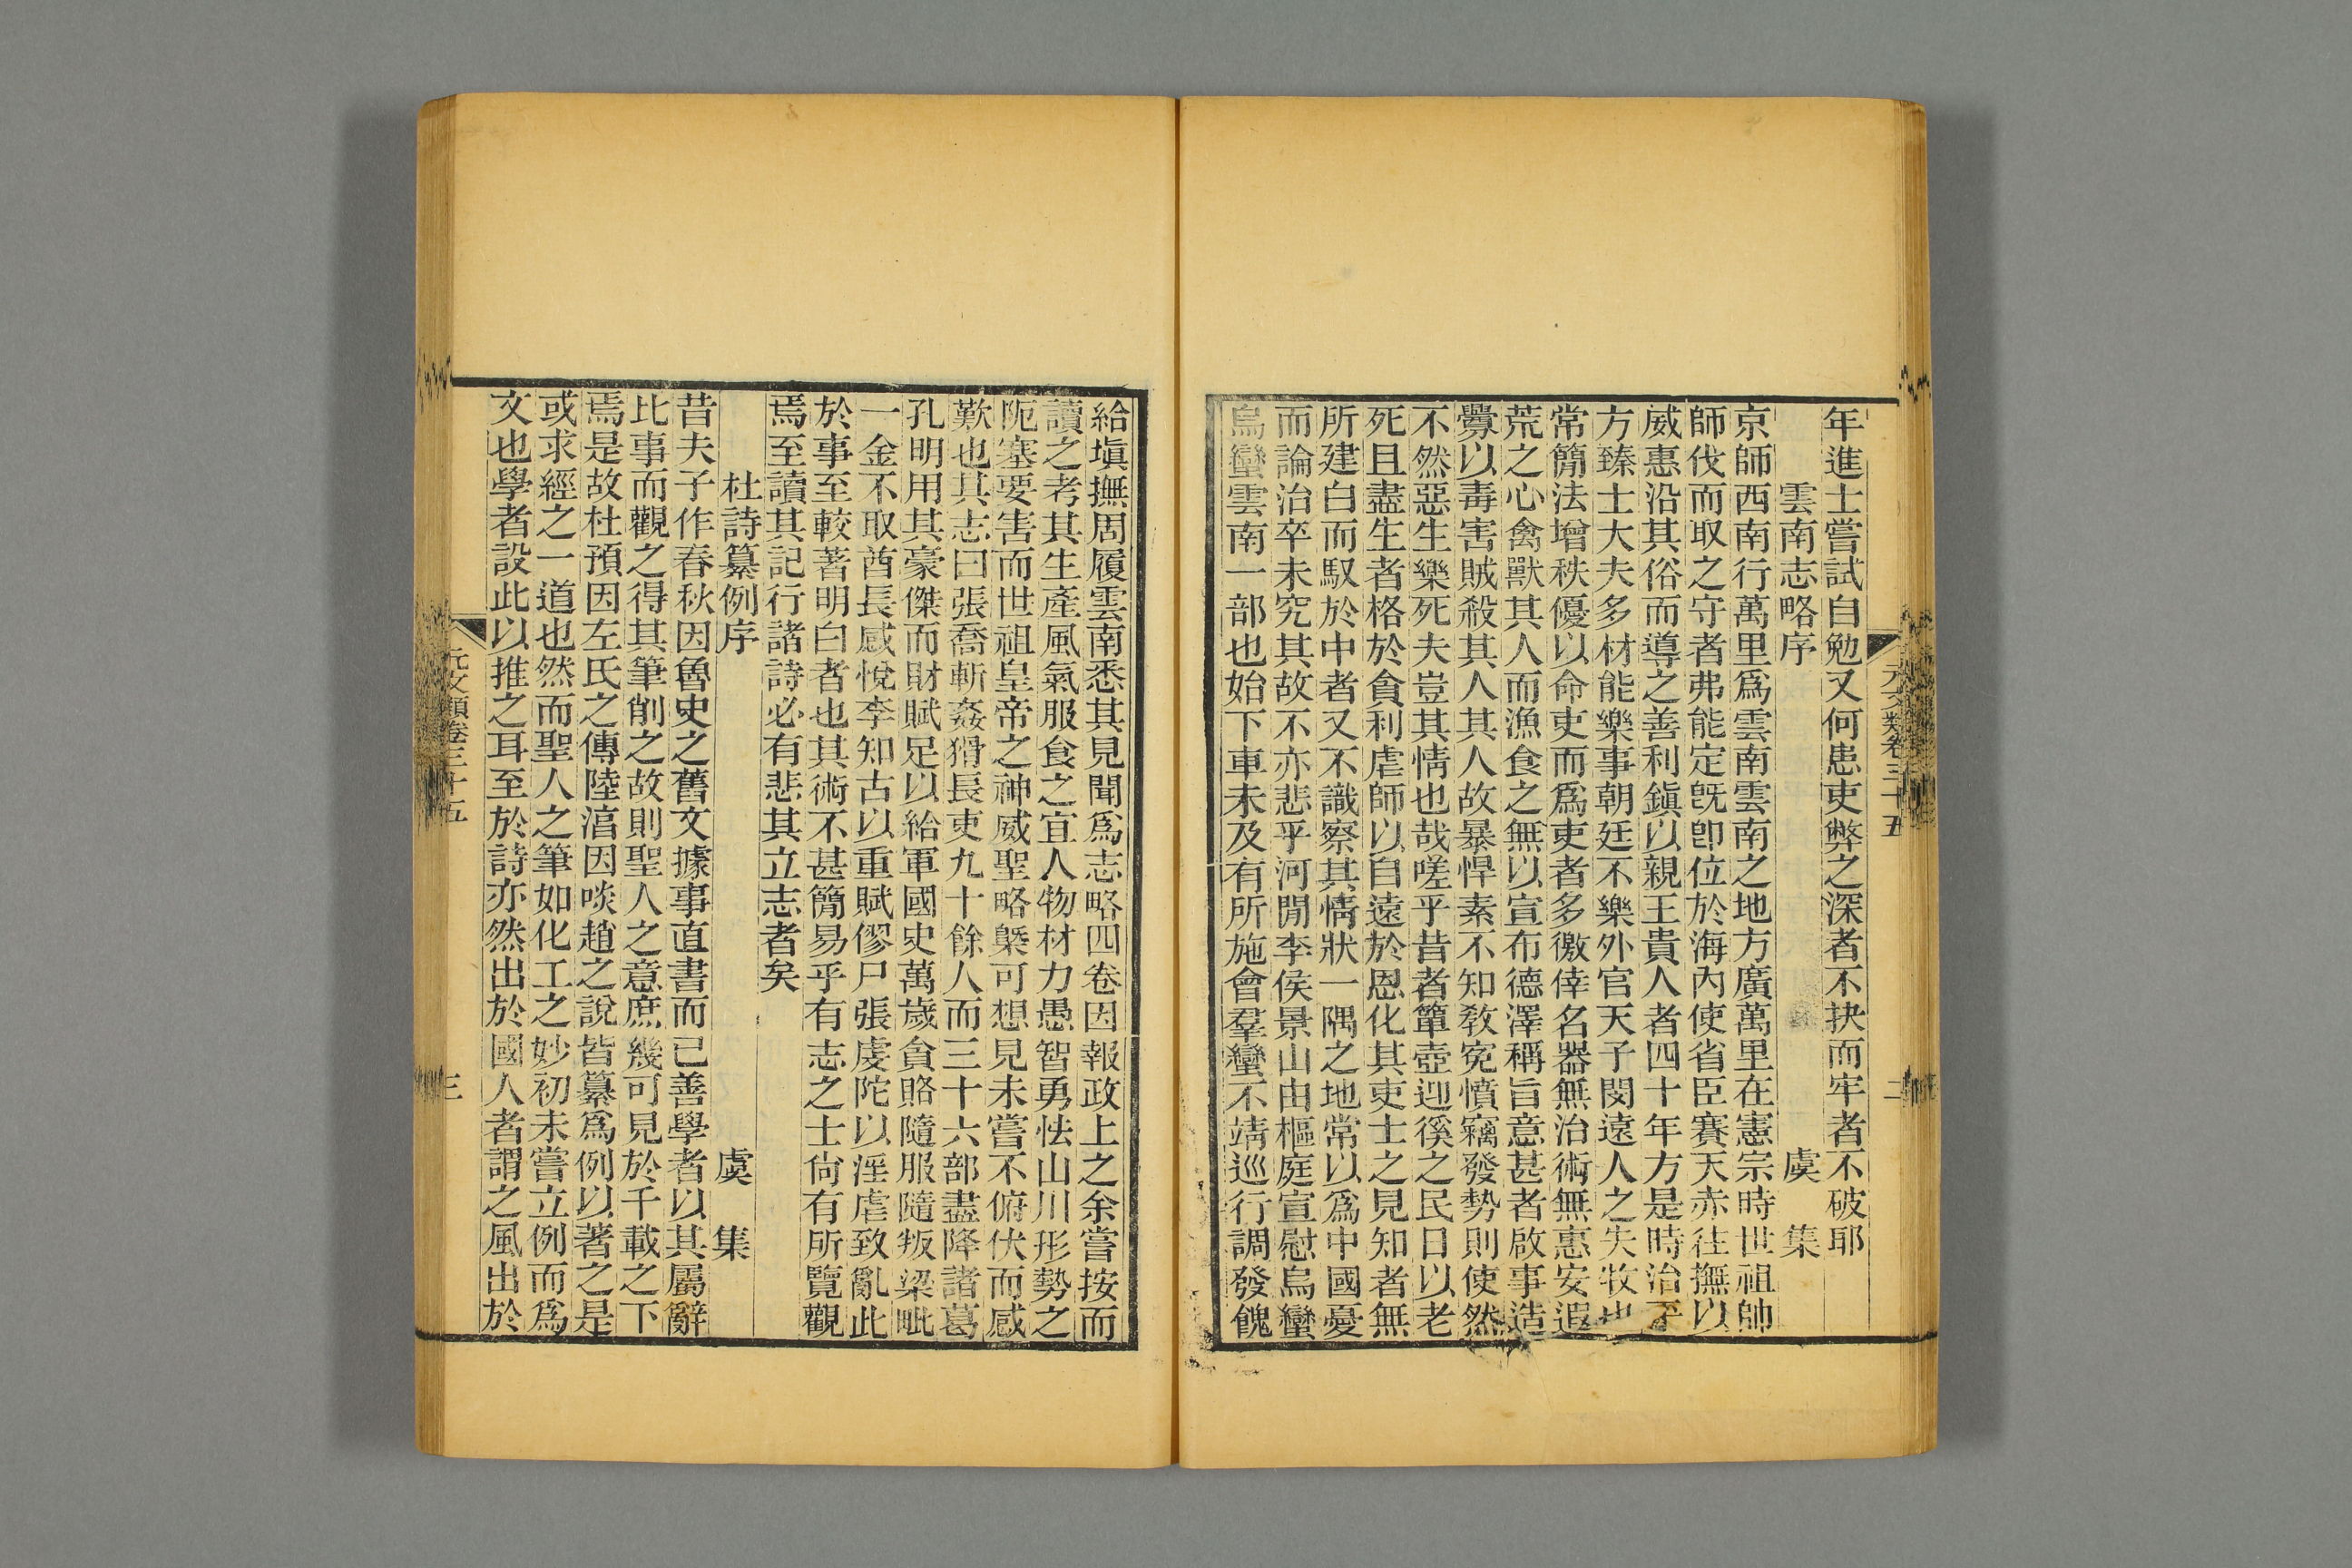 年進士嘗試自勉又何患吏弊之深者不抉而牢者不破耶
雲南志略序 虞 集
京師西南行萬里爲雲南雲南之地方廣萬里在憲宗時世祖帥
師伐而取之守者弗能定旣卽位於海內使省臣賽天赤往撫以
威惠沿其俗而導之善利鎮以親王貴人者四十年方是時治平
方臻士大夫多材能樂事朝廷不樂外官天子閔遠人之失牧也
常簡法增秩優以命吏而爲吏者多徼倖名器無治術無惠安遐
荒之心禽獸其人而漁食之無以宣布德澤稱旨意甚者啟事造
釁以毒害賊殺其人其人故暴悍素不知教冤憤竊發勢則使然
不然惡生樂死夫豈其情也哉嗟乎昔者簞壺迎徯之民日以老
死且盡生者格於貪利虐師以自遠於恩化其吏士之見知者無
所建白而馭於中者又不識察其情狀一隅之地常以爲中國憂
而論治卒未究其故不亦悲乎河閒李侯景山由樞庭宣慰烏蠻
烏蠻雲南一部也始下車未及有所施會羣蠻不靖巡行調發餽
元文類卷三十五 二
給塡撫周履雲南悉其見聞爲志略四卷因報政上之余嘗按而
讀之考其生產風氣服食之宜人物材力愚智勇怯山川形勢之
阨塞要害而世祖皇帝之神威聖略槩可想見未嘗不俯伏而感
歎也其志曰張喬斬姦猾長吏九十餘人而三十六部盡降諸葛
孔明用其豪傑而財賦足以給軍國史萬歲貪賂隨服隨叛梁毗
一金不取酋長感悅李知古以重賦僇尸張虔陀以淫虐致亂此
於事至較著明白者也其術不甚簡易乎有志之士尙有所覽觀
焉至讀其記行諸詩必有悲其立志者矣
杜詩纂例序 虞 集
昔夫子作春秋因魯史之舊文據事直書而已善學者以其屬辭
比事而觀之得其筆削之故則聖人之意庶幾可見於千載之下
焉是故杜預因左氏之傳陸淳因啖趙之說皆纂爲例以著之是
或求經之一道也然而聖人之筆如化工之妙初未嘗立例而爲
文也學者設此以推之耳至於詩亦然出於國人者謂之風出於
元文類卷三十五 三